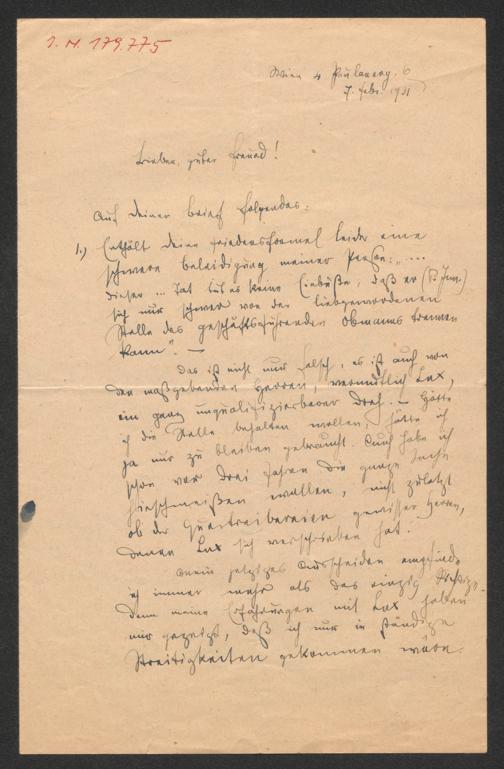 I. N. 179.775
Wien 4 Paulanerg. 6
7. Febr. 1931
Lieber, guter Freund!
Auf deinen Brief folgendes:
1.) Enthält deine Friedensformel leider eine
schwere Beleidigung meiner Person: „...
dieser ... Tat tut es keine Einbuße, daß er
sich nur schwer von der liebgewordenen
Stelle des geschäftsführenden Obmanns trennen
kann". —
Das ist nicht nur falsch, es ist auch von
den maßgebenden Herren, vermutlich Lux,
ein ganz unqualifizierbarer Dreh. — Hätte
ich die Stelle behalten wollen, hätte ich
ja nur zu bleiben gebraucht. Auch habe ich
schon vor drei Jahren die ganze Sache
hinschmeißen wollen, nicht zuletzt
ob der Quertreibereien gewisser Herren,
denen Lux sich verschrieben hat.
Mein jetziges Ausscheiden empfinde
ich immer mehr als das einzig Richtige.
Denn meine Erfahrungen mit Lux haben
mir gezeigt, daß ich nur in ständige
Streitigkeiten gekommen wäre.